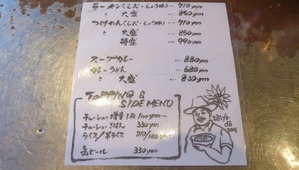 ラーメン(しお・しょうゆ) … 710yen
〃 大盛 … 860yen
つけめん(しお・しょうゆ) … 710yen
〃 大盛 … 850yen
特盛 … 940yen
スープカレー … 880yen
カレーラーメン … 680yen
〃 大盛 … 830yen
TOPPING &
SIDE MENU
チャーシュー増量 1枚/100yen〜
チャーシューごはん 330yen
ライス/半ライス 210/
缶ビール 330yen